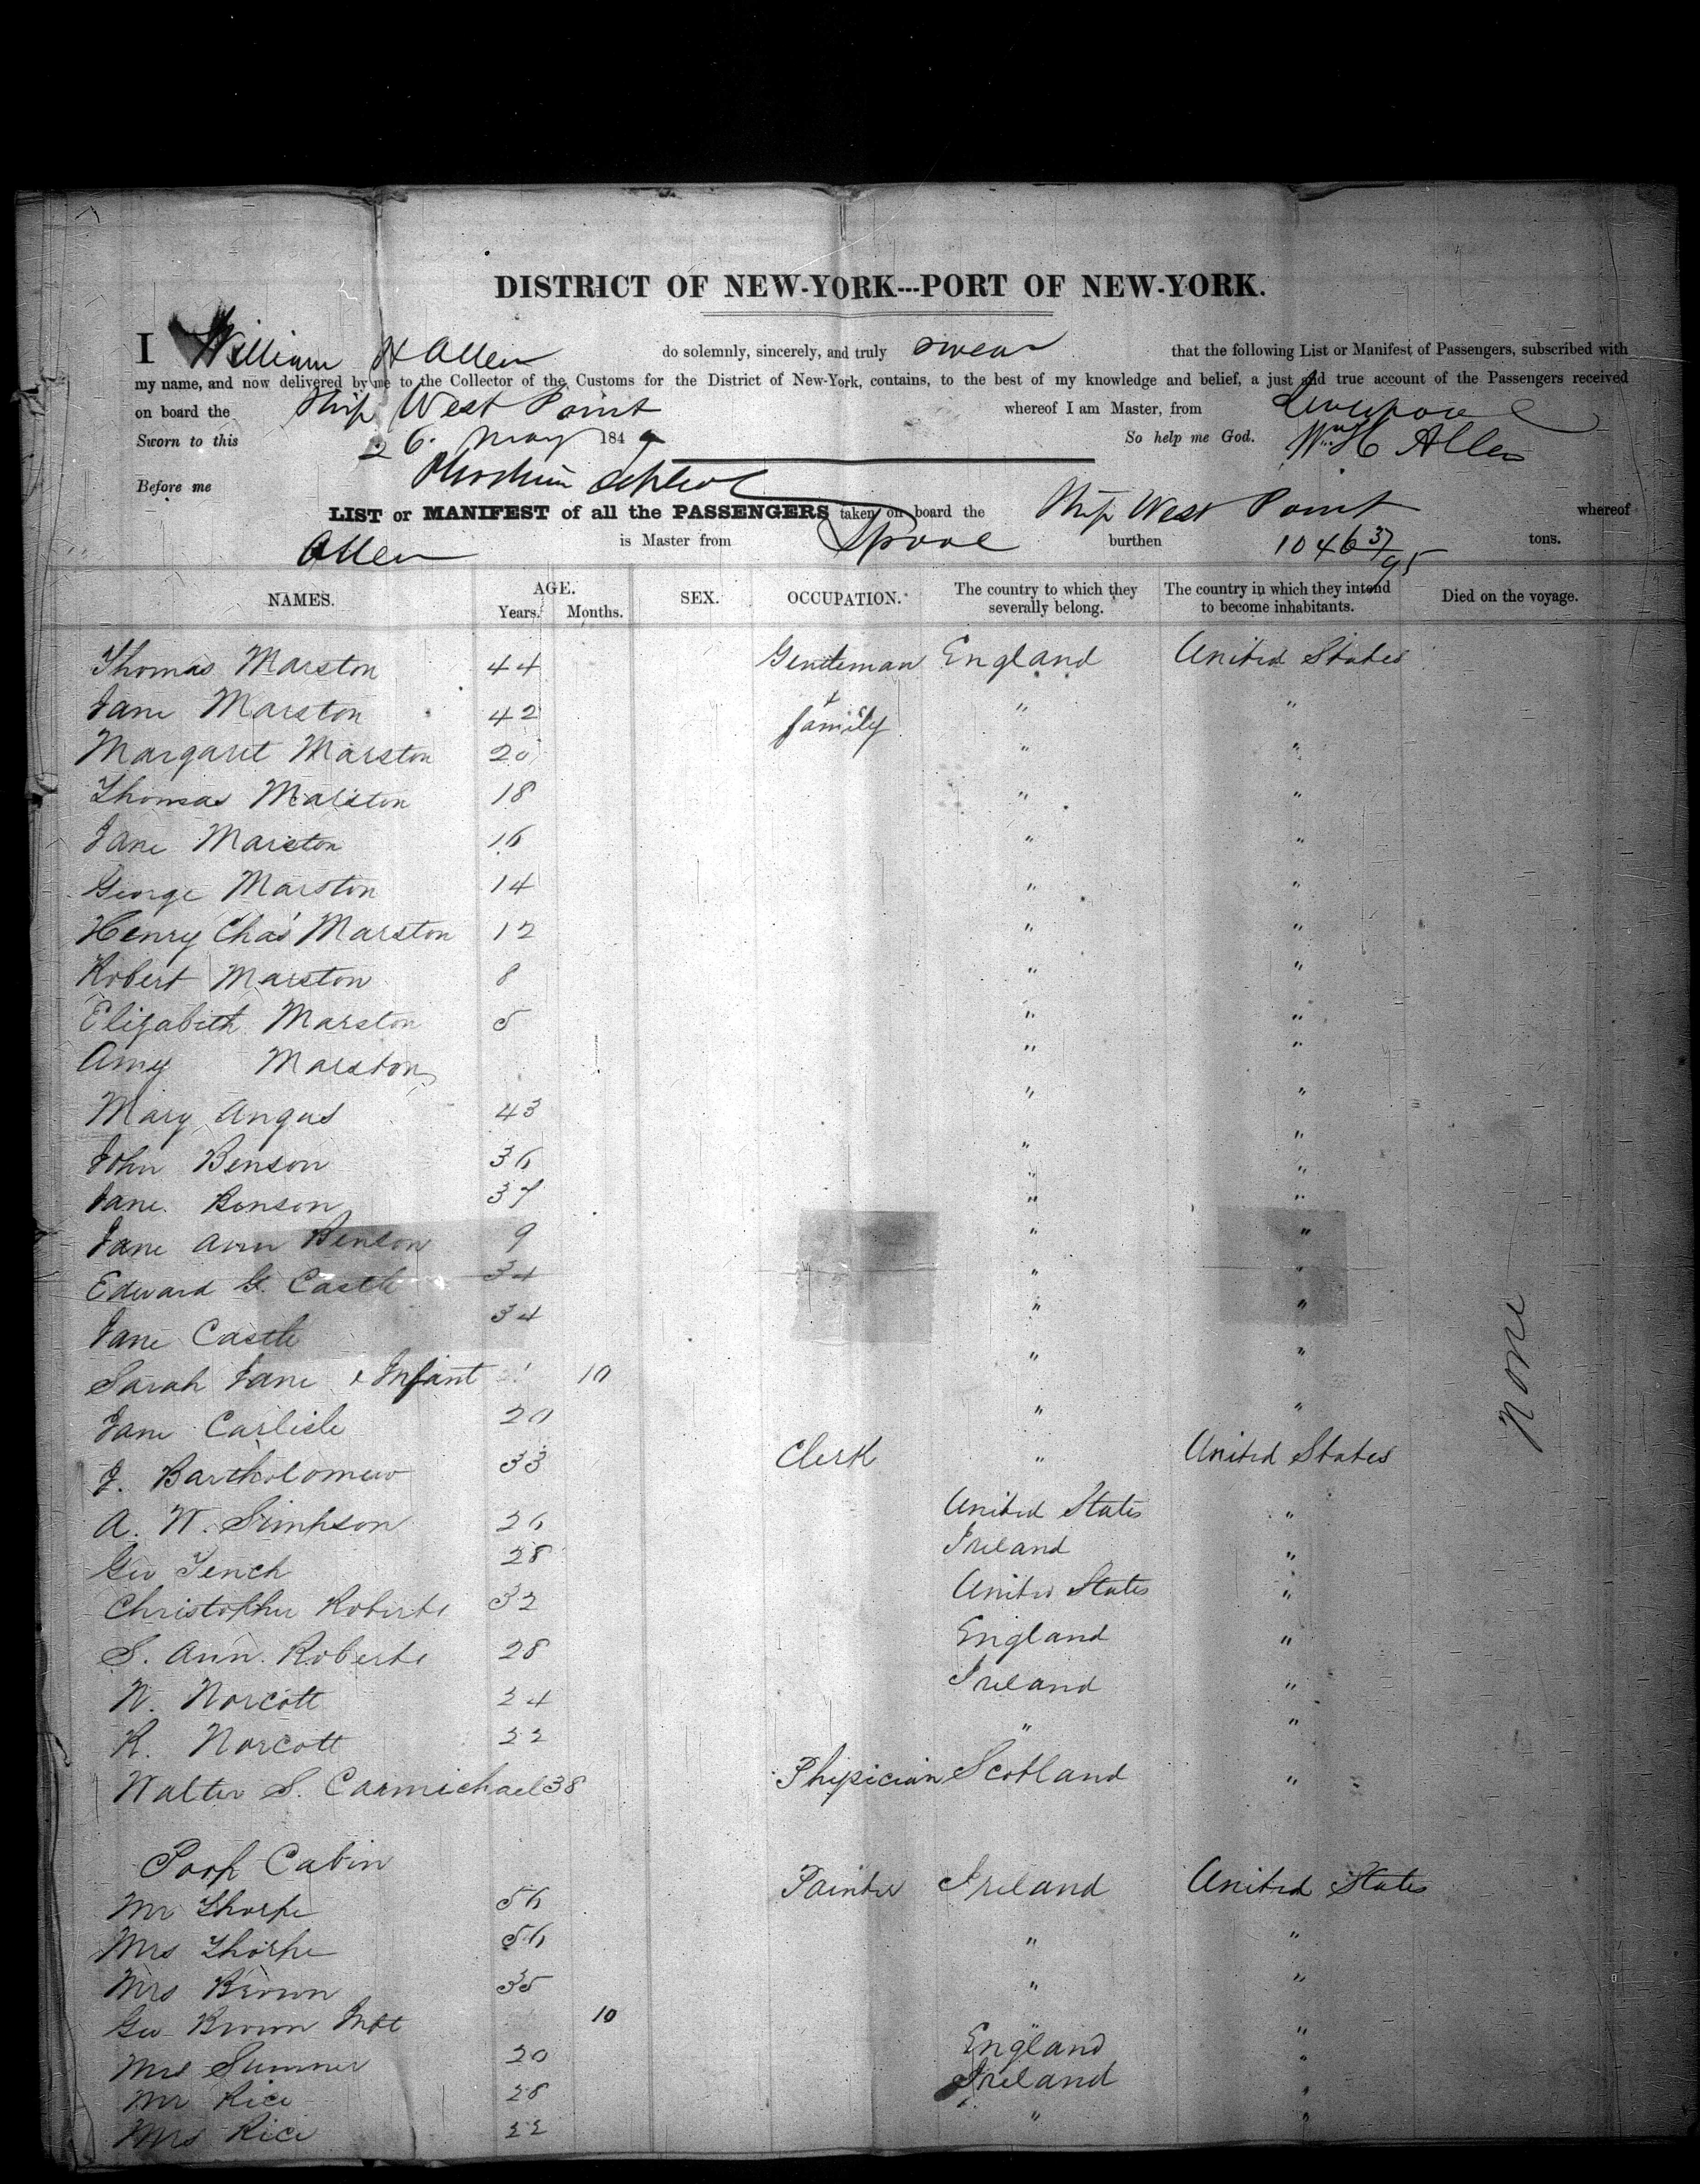 DISTRICT OF NEW-YORK---PORT OF NEW-YORK.
I William H Allen do solemnly, sincerely, and truly swear that the following List or Manifest of Passengers, subscribed with
my name, and now delivered by me to the Collector of the Customs for the District of New-York, contains, to the best of my knowledge and belief, a just and true account of the Passengers received
on board the Ship West Point whereof I am Master, from Liverpool
Sworn to this 26. May 1849 So help me God. Wm H Allen
Before me
LIST or MANIFEST of all the PASSENGERS taken on board the Ship West Point whereof
Allen is Master from Lpool burthen 1046 37/95 tons.
NAMES. AGE. Years. Months. SEX. OCCUPATION. The country to which they severally belong. The country in which they intend to become inhabitants. Died on the voyage.
Thomas Marston 44 Gentleman England United States
Jane Marston 42 + family " "
Margaret Marston 20 " "
Thomas Marston 18 " "
Jane Marston 16 " "
George Marston 14 " "
Henry Chas Marston 12 " "
Robert Marston 8 " "
Elizabeth Marston 5 " "
Amy Marston " "
Mary Angus 43 " "
John Benson 36 " "
Jane Benson 37 " "
Jane Ann Benson 9 " "
Edward G. Castle 34 " "
Jane Castle 34 " "
Sarah Jane & Infant 10 " "
Jane Carlisle 20 " "
J. Bartholomew 33 Clerk " United States
A. W. Simpson 26 United States "
Geo Tench 28 Ireland "
Christopher Roberts 32 United States "
S. Ann. Roberts 28 England "
W. Norcott 24 Ireland "
R. Norcott 22 " "
Walter S. Carmichael 38 Physician Scotland "
none
Poop Cabin
Mr Thorpe 56 Painter Ireland United States
Mrs Thorpe 56 " "
Mrs Brown 35 " "
Geo Brown Inft 10 " "
Mrs Sumner 20 England "
Mr Rice 28 Ireland "
Mrs Rice 22 " "